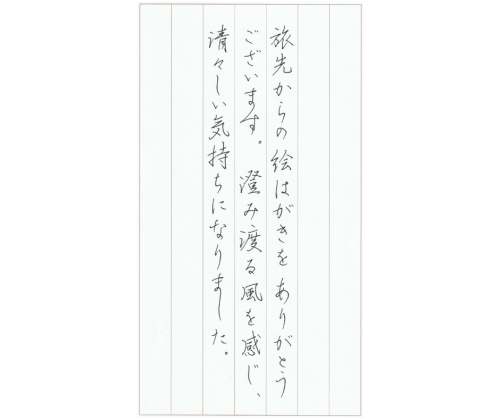 旅先からの絵はがきをありがとう
ございます。澄み渡る風を感じ、
清々しい気持ちになりました。